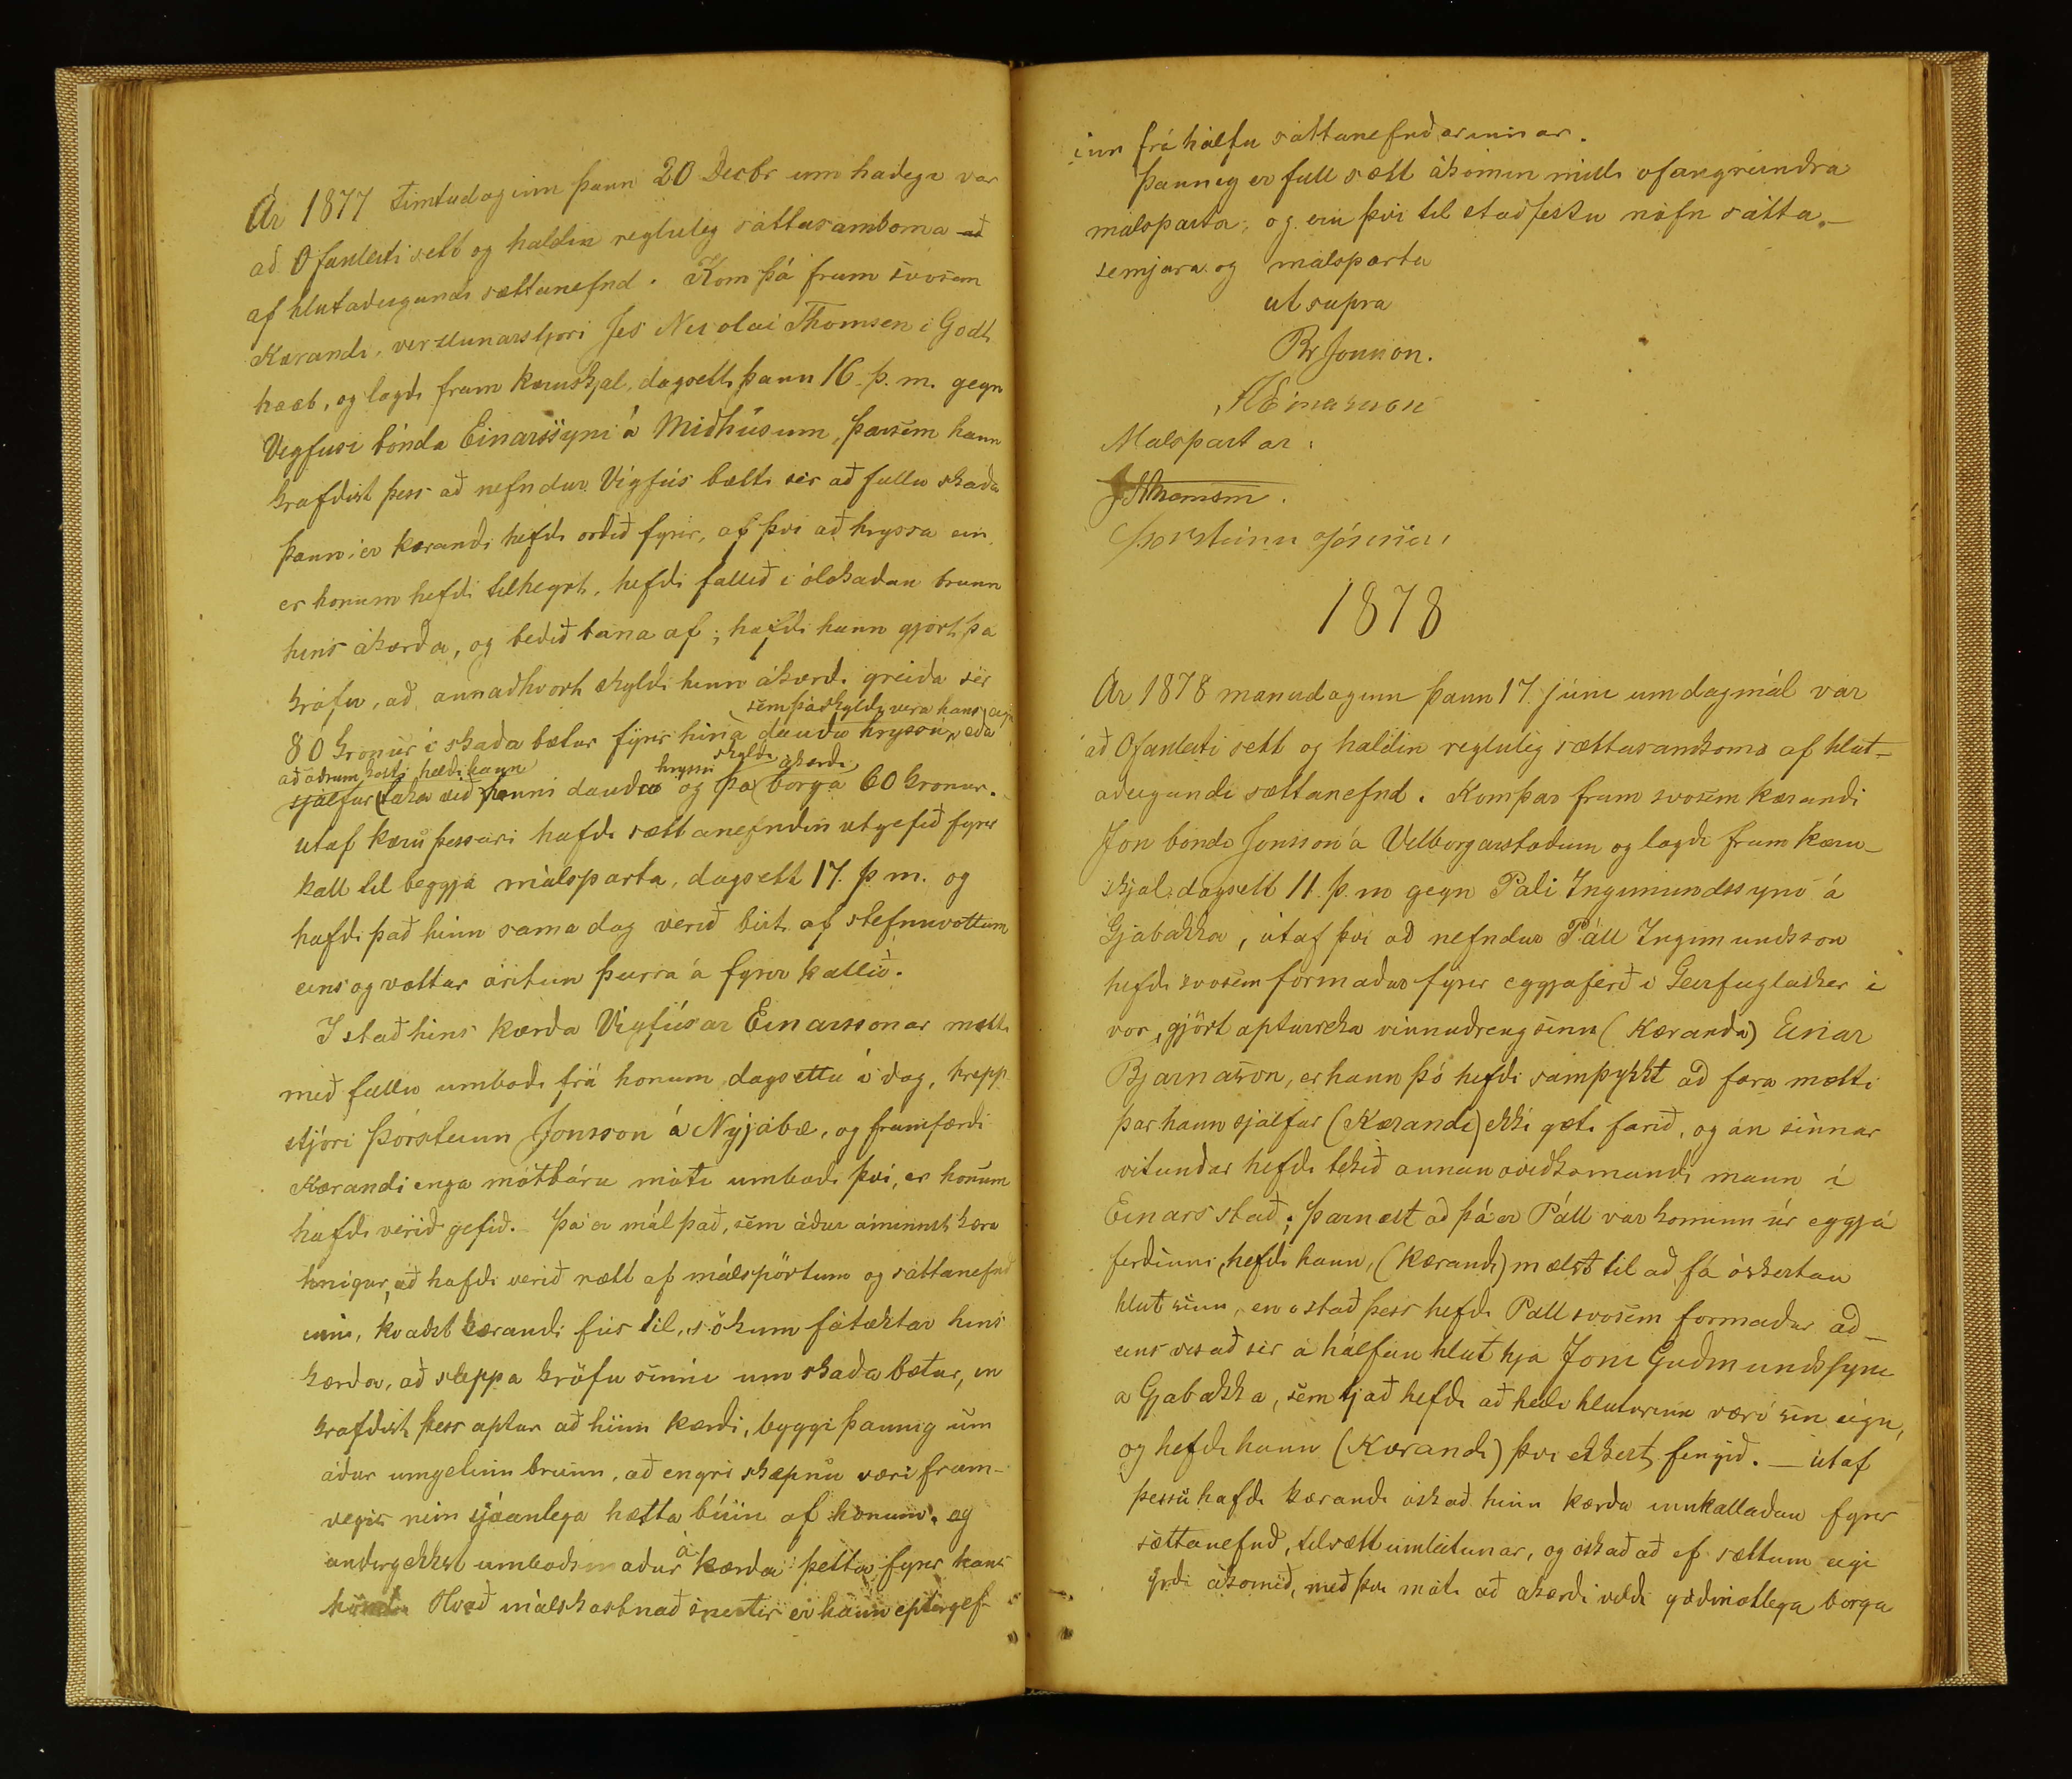 Ár 1877 timtudaginn þann 20 Decbr um hadegi var
að Ofanleiti sett og haldin regluleg sáttasamkoma að
af hlutaðeigandi sættanefnd. Kom þá fram svosem
Kærandi, verzlunarstjori Jes Nicolai Thomsen i Godt
haab, og lagdi fram kæruskjal, dagsett þann 16. þ. m. gegn
Vigfusi bónda Einarssyni á Miðhúsum, þarsem hann
krafdist þess að nefndur Vigfús bætti sér að fullu skaða
þann, er kærandi hefdi orðið fyrir, af því að hryssa ein,
er honum hefdi tilheyrt, hefdi fallið i ólokaðan brunn
hins ákærða, og beðið bana af; hafdi hann gjört þa
kröfu, að annaðhvort skyldi hinn ákærdi greiða sér
sem þá skyldi vera hans eign
80 kronur i skaða bætur fyrir hina dauðu hryssu, eða
að öðrum kosti hefdi hann hryssu skyldi akærdi
sjálfur taka við henni dauðu og þa borga 60 kronur.
Utaf kæru þessari hafdi sættanefndin utgefið fyrir
kall til beggja málsparta, dagsett 17. þ m. og
hafdi það hinn sama dag verið birt af stefnuvottum
eins og vottar áritun þeirra á fyrir kallið.
I stað hins kærða Vigfúsar Einarssonar mætti
með fullu umboði frá honum dagsettu i dag, hrepp
stjóri Þorsteinn Jonsson á Nyjabæ, og framfærdi
Kærandi enga mótbáru móti umboði því, er honum
hafdi verið gefið. Þá er mál það, sem áður áminnst kæra
hnigur, að hafdi verið rætt af málspörtum og sáttanefnd
inni, kvaðst kærandi fús til, sökum fátæktar hins
kærða, að sleppa kröfu sinni um skaða bætur, en
krafdist þess aptur að hinn kærdi, byggi þannig um
áður umgetinn brunn, að engri skepnu væri fram-
vegis nein sjáanlega hætta búin af honum. og
á
undirgekkst umboðsmaður kærða þetta fyrir hans
hönd. Hvað málskostnað snertir er hann eptirgef-
inn frá hálfu sáttanefndarinnar.
Þannig er full sætt ákomin milli ofangreindra
málsparta, og eru því til staðfestu nöfn sátta-
semjara og málsparta
ut supra
Br Jonsson.
JEinarsson
Malspartar:
JNThomsen.
Þorsteinn Jónsson,
1878
Ár 1878 manudaginn þann 17. júni um dagmál var
að Ofanleiti sett og haldin regluleg sættasamkoma af hlut-
aðeigandi sættanefnd. Kom þar fram svosem kærandi
Jon bóndi Jonsson á Vilborgarstöðum og lagdi fram kæru-
skjal dagsett 11. þ. m gegn Páli Ingimundssyni á
Gjábakka, útaf því að nefndur Páll Ingimundsson
hefdi svosem formaður fyrir eggjaferð i Geirfuglasker i
vor, gjört apturreka vinnudreng sinn (Kæranda) Einar
Bjarnason, er hann þó hefdi samþykkt að fara mætti
þar hann sjálfur (Kærandi) ekki gæti farið, og án sinnar
vitundar hefdi tekið annan óviðkomandi mann i
Einars stað; þarnæst að þá er Páll var kominn úr eggja
ferðinni, hefdi hann, (Kærandi) mælst til að fá óskertan
hlut sinn, en i stað þess hefdi Páll svosem formaður að-
eins visað sér á hálfan hlut hjá Joni Guðmundssyni
á Gjábakka, sem tjáð hefdi að heili hluturinn væri sin eign,
og hefdi hann (Kærandi) því ekkert fengið. — útaf
þessu hafdi kærandi óskað hinn kærða innkallaðan fyrir
sættanefnd, til sættumleitunar, og óskað að ef sættum eigi
yrdi ákomið, með því móti að ákærdi vildi góðmótlega borga